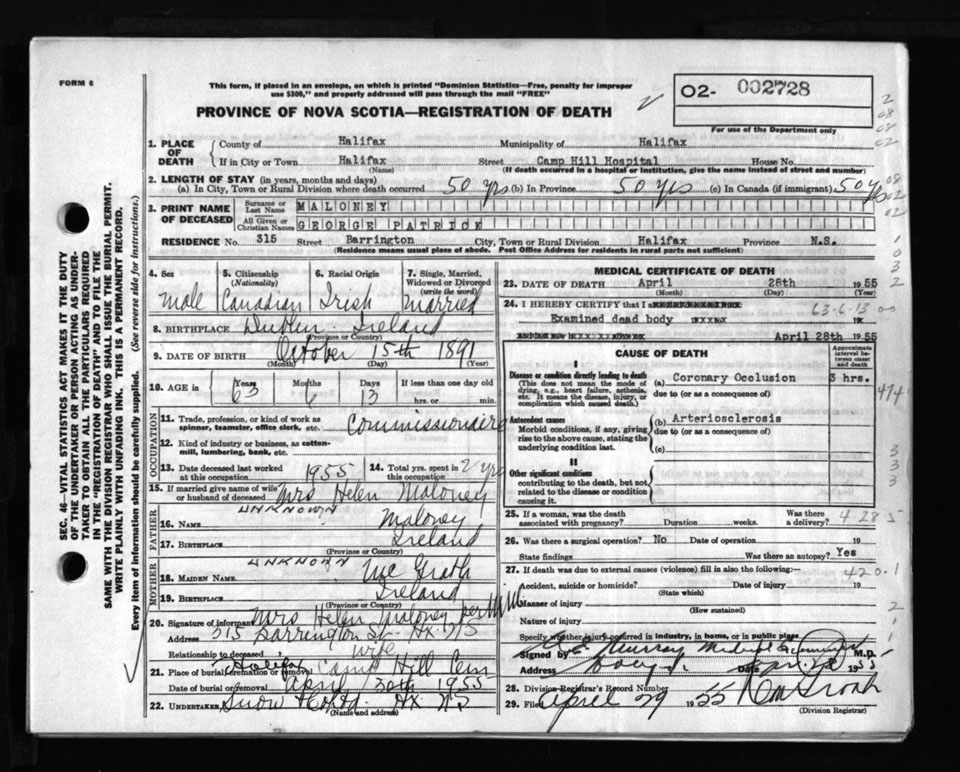 FORM 6
This form, if placed in an envelope, on which is printed "Dominion Statistics—Free, penalty for improper
use $300," and properly addressed will pass through the mail "FREE"
PROVINCE OF NOVA SCOTIA—REGISTRATION OF DEATH
02- 002728
For use of the Department only
1. PLACE OF DEATH
County of Halifax Municipality of Halifax
If in City or Town Halifax Street Camp Hill Hospital House No.
(Name) (If death occurred in a hospital or institution, give the name instead of street and number)
2. LENGTH OF STAY (in years, months and days)
(a) In City, Town or Rural Division where death occurred 50 yrs (b) In Province 50 yrs (c) In Canada (if immigrant) 50 yrs
3. PRINT NAME OF DECEASED
Surname or Last Name MALONEY
All Given or Christian Names GEORGE PATRICK
RESIDENCE No. 315 Street Barrington City, Town or Rural Division Halifax Province N.S.
(Residence means usual place of abode. Post Office Address for residents in rural parts not sufficient)
SEC. 46—VITAL STATISTICS ACT MAKES IT THE DUTY
OF THE UNDERTAKER OR PERSON ACTING AS UNDER-
TAKER TO OBTAIN ALL THE PARTICULARS REQUIRED
IN THE "REGISTRATION OF DEATH" AND TO FILE THE
SAME WITH THE DIVISION REGISTRAR WHO SHALL ISSUE THE BURIAL PERMIT.
WRITE PLAINLY WITH UNFADING INK. THIS IS A PERMANENT RECORD.
Every item of information should be carefully supplied. (See reverse side for instructions.)
4. Sex male
5. Citizenship (Nationality) Canadian
6. Racial Origin Irish
7. Single, Married, Widowed or Divorced (write the word) married
8. BIRTHPLACE Dublin Ireland
(Province or Country)
9. DATE OF BIRTH October 15th 1891
(Month) (Day) (Year)
10. AGE in Years 63 Months 6 Days 13 If less than one day old hrs. or min.
OCCUPATION
11. Trade, profession, or kind of work as
spinner, teamster, office clerk, etc. Commissionaire
12. Kind of industry or business, as cotton-
mill, lumbering, bank, etc.
13. Date deceased last worked
at this occupation 1955
14. Total yrs. spent in this occupation 2 yrs
15. If married give name of wife
or husband of deceased Mrs Helen Maloney
FATHER
16. NAME UNKNOWN Maloney
17. BIRTHPLACE Ireland
(Province or Country)
MOTHER
18. MAIDEN NAME UNKNOWN McGrath
19. BIRTHPLACE Ireland
(Province or Country)
20. Signature of informant Mrs Helen Maloney per
Address 315 Barrington St Hx NS
Relationship to deceased wife
21. Place of burial, cremation or removal Halifax Camp Hill Cem
Date of burial or removal April 30th 1955
22. UNDERTAKER Snow & Co Ltd. Hx NS
(Name and address)
MEDICAL CERTIFICATE OF DEATH
23. DATE OF DEATH April 28th 1955
(Month) (Day) (Year)
24. I HEREBY CERTIFY that I 63-6-13 00
Examined dead body 19
April 28th 1955
CAUSE OF DEATH
Approximate interval between onset and death
I
Disease or condition directly leading to death
(This does not mean the mode of
dying, e.g., heart failure, asthenia,
etc. It means the disease, injury, or
complication which caused death.)
(a) Coronary Occlusion 3 hrs.
due to (or as a consequence of)
Antecedent causes
Morbid conditions, if any, giving
rise to the above cause, stating the
underlying condition last.
(b) Arteriosclerosis
due to (or as a consequence of)
(c)
II
Other significant conditions
contributing to the death, but not
related to the disease or condition
causing it.
25. If a woman, was the death
associated with pregnancy? Duration weeks. Was there a delivery? 4 28 5
26. Was there a surgical operation? No Date of operation 19
State findings Was there an autopsy? Yes
27. If death was due to external causes (violence) fill in also the following:— 420.1
Accident, suicide or homicide? Date of injury 19
(State which)
Manner of injury
(How sustained)
Nature of injury
Specify whether injury occurred in industry, in home, or in public place
Signed by Murray Medical Examiner M.D.
Address Date 1955
28. Division Registrar's Record Number
29. Filed April 29 1955
(Division Registrar)